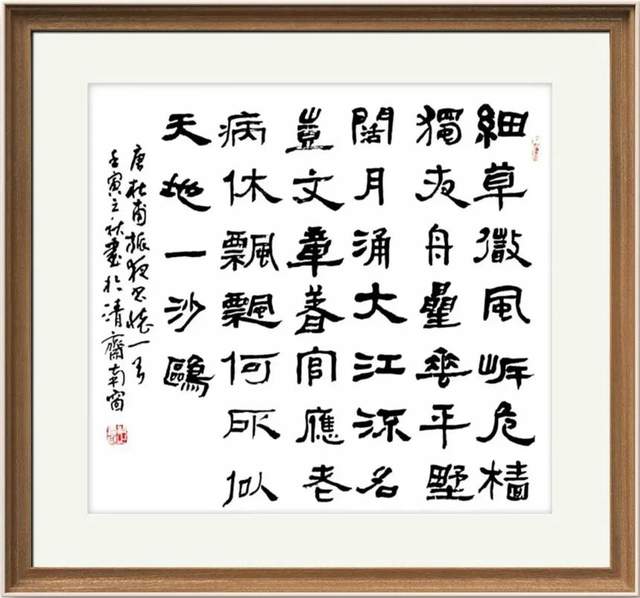 細草微風岸危檣
獨夜舟星垂平野
闊月涌大江流名
豈文章著官應老
病休飄飄何所似
天地一沙鷗
唐杜甫旅夜書懷一首
壬寅之秋書於清齋南窗